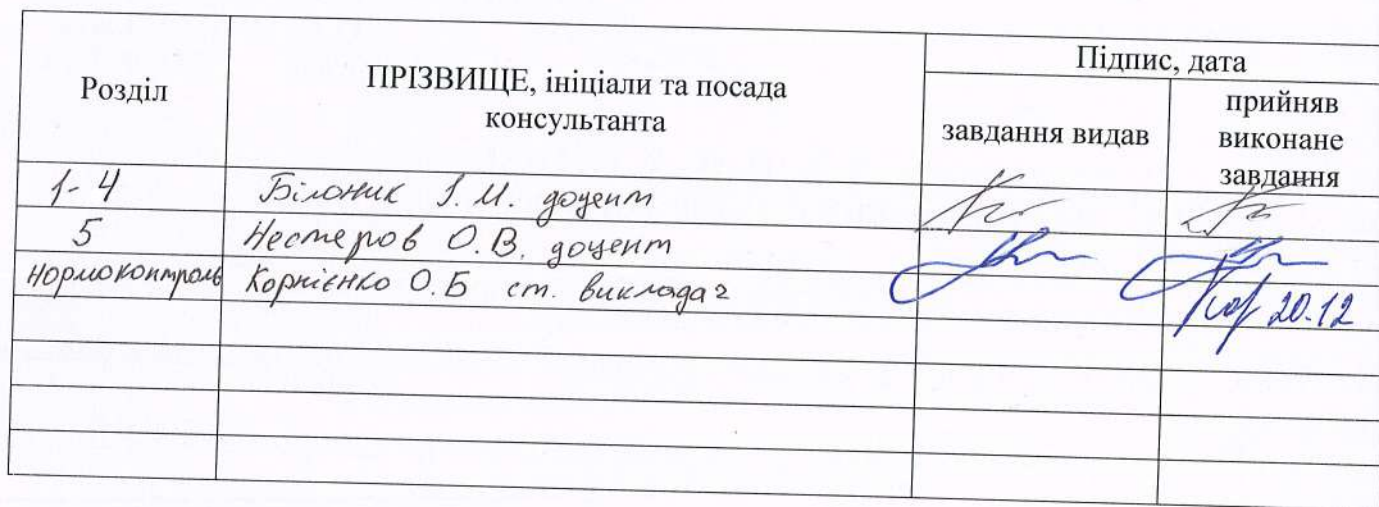 Розділ
ПРІЗВИЩЕ, ініціали та посада
консультанта
Підпис, дата
завдання видав
прийняв
виконане
завдання
1-4 Білоник І.М. доцент
5 Нестеров О.В. доцент
Нормоконтроль Корнієнко О.Б ст. викладач
20.12